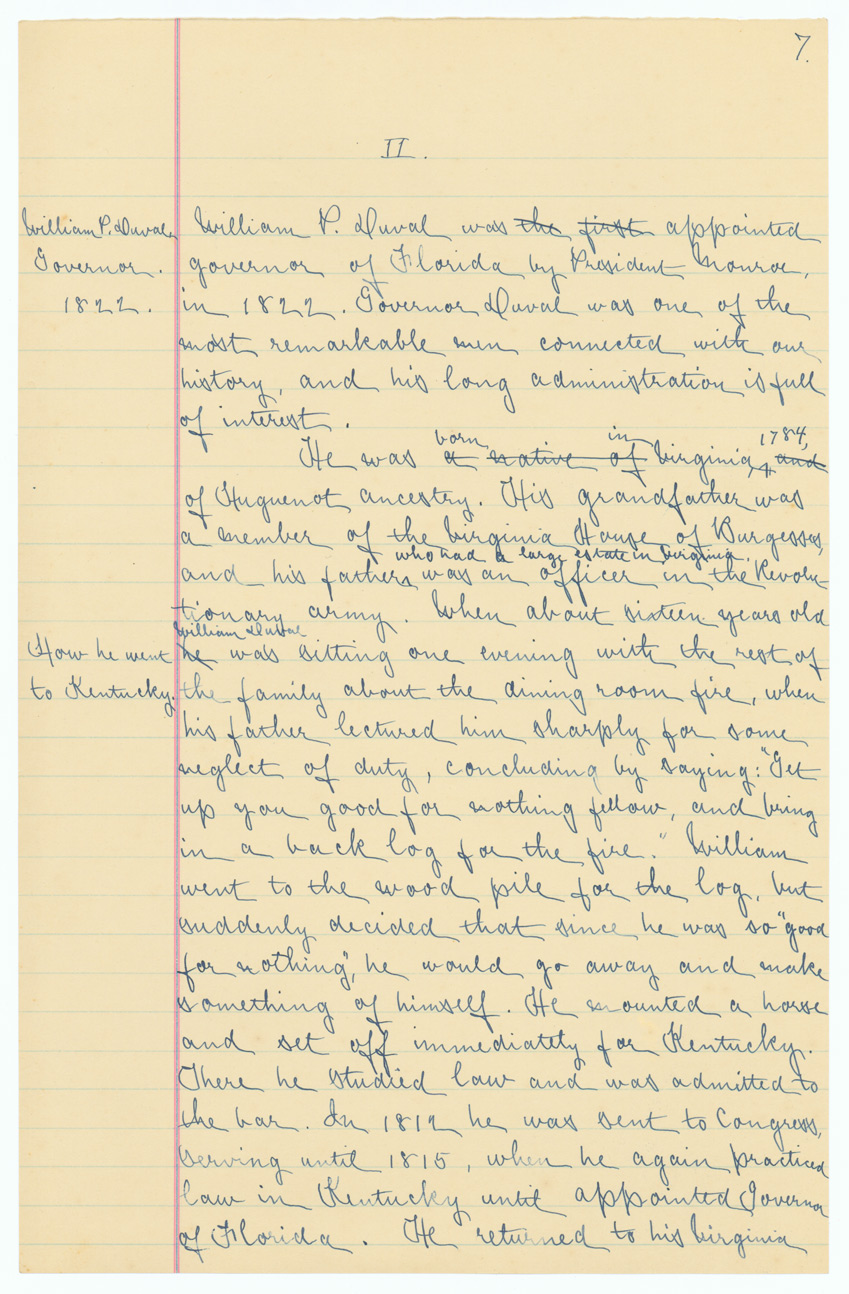 7.
II.
William P. Duval
Governor.
1822.
William P. Duval was the first appointed
governor of Florida by President Monroe,
in 1822. Governor Duval was one of the
most remarkable men connected with our
history, and his long administration is full
of interest.
born in 1784,
He was a native of Virginia, and
of Huguenot ancestry. His grandfather was
a member of the Virginia House of Burgesses,
who had a large estate in Virginia,
and his father was an officer in the Revolu-
tionary army. When about sixteen years old
William Duval
How he went
to Kentucky.
he was sitting one evening with the rest of
the family about the dining room fire, when
his father lectured him sharply for some
neglect of duty, concluding by saying: "Get
up you good for nothing fellow, and bring
in a back log for the fire." William
went to the wood pile for the log, but
suddenly decided that since he was so "good
for nothing", he would go away and make
something of himself. He mounted a horse
and set off immediately for Kentucky.
There he studied law and was admitted to
the bar. In 1812 he was sent to Congress,
serving until 1815, when he again practiced
law in Kentucky until appointed Governor
of Florida. He returned to his Virginia